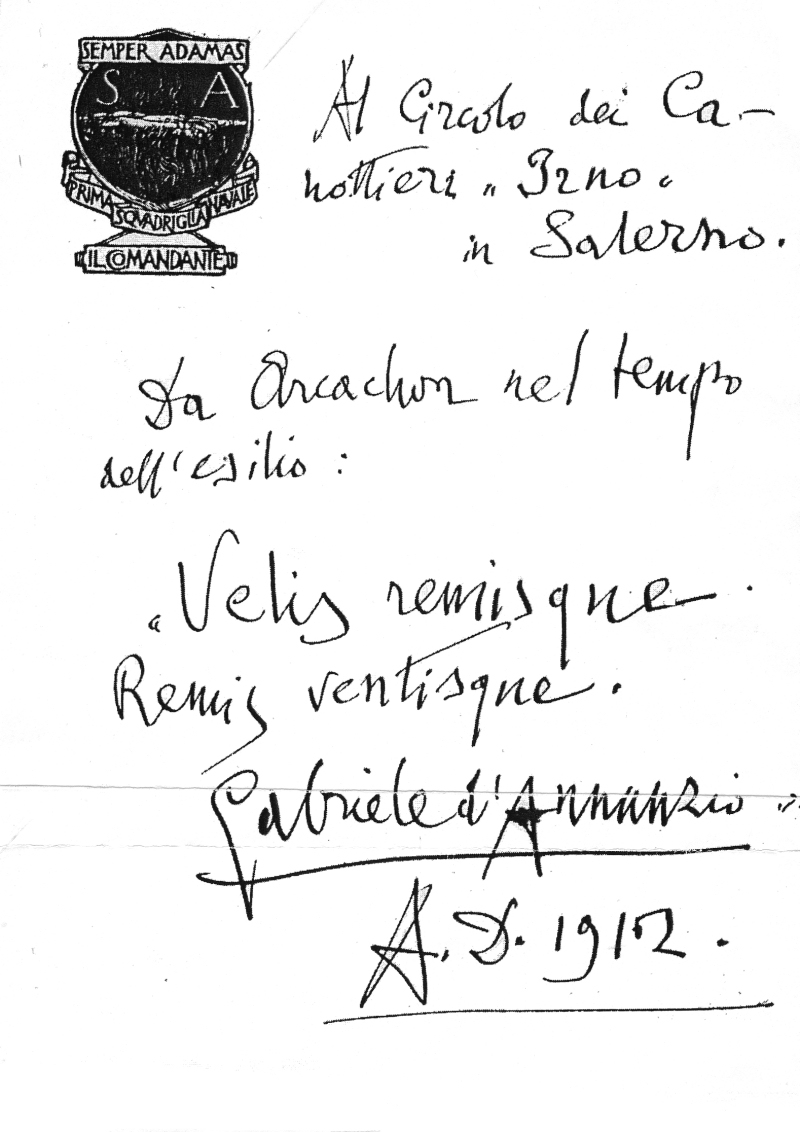 SEMPER ADAMAS
S A
PRIMA SQVADRIGLIA NAVALE
IL COMANDANTE
Al Circolo dei Ca-
nottieri „Irno"
in Salerno.
Da Arcachon nel tempo
dell'esilio:
"Velis remisque.
Remis ventisque.
Gabriele d'Annunzio"
A. D. 1912.